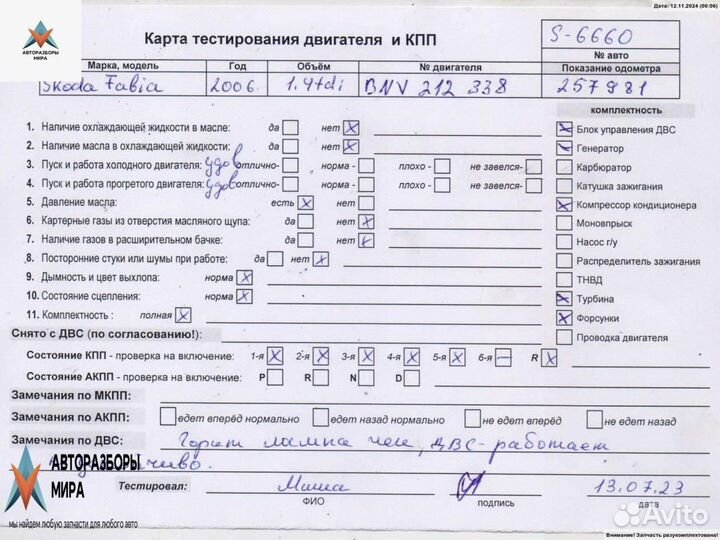 Дата: 12.11.2024 (00:06)
АВТОРАЗБОРЫ
МИРА
Карта тестирования двигателя и КПП
S-6660
№ авто
Марка, модель Год Объём № двигателя Показание одометра
Skoda Fabia 2006 1.4tdi BNV 212 338 257981
комплектность
1. Наличие охлаждающей жидкости в масле: да нет X
Блок управления ДВС
2. Наличие масла в охлаждающей жидкости: да нет X
Генератор
3. Пуск и работа холодного двигателя: удов отлично- норма - плохо - не завелся-
Карбюратор
4. Пуск и работа прогретого двигателя: удов отлично- норма - плохо - не завелся-
Катушка зажигания
5. Давление масла: есть X нет
Компрессор кондиционера
6. Картерные газы из отверстия масляного щупа: да нет X
Моновпрыск
7. Наличие газов в расширительном бачке: да нет X
Насос г/у
8. Посторонние стуки или шумы при работе: да нет X
Распределитель зажигания
9. Дымность и цвет выхлопа: норма X
ТНВД
10. Состояние сцепления: норма X
Турбина
11. Комплектность : полная X
Форсунки
Снято с ДВС (по согласованию!):
Проводка двигателя
Состояние КПП - проверка на включение: 1-я X 2-я X 3-я X 4-я X 5-я X 6-я — R X
Состояние АКПП - проверка на включение: P R N D
Замечания по МКПП:
Замечания по АКПП: едет вперёд нормально едет назад нормально не едет вперёд не едет назад
Замечания по ДВС: Горит лампа чек, ДВС-работает
чиво.
АВТОРАЗБОРЫ
МИРА
мы найдем любую запчасти для любого авто
Тестировал: Миша 13.07.23
ФИО подпись дата
Avito
Внимание! Запчасть разукомплектована!